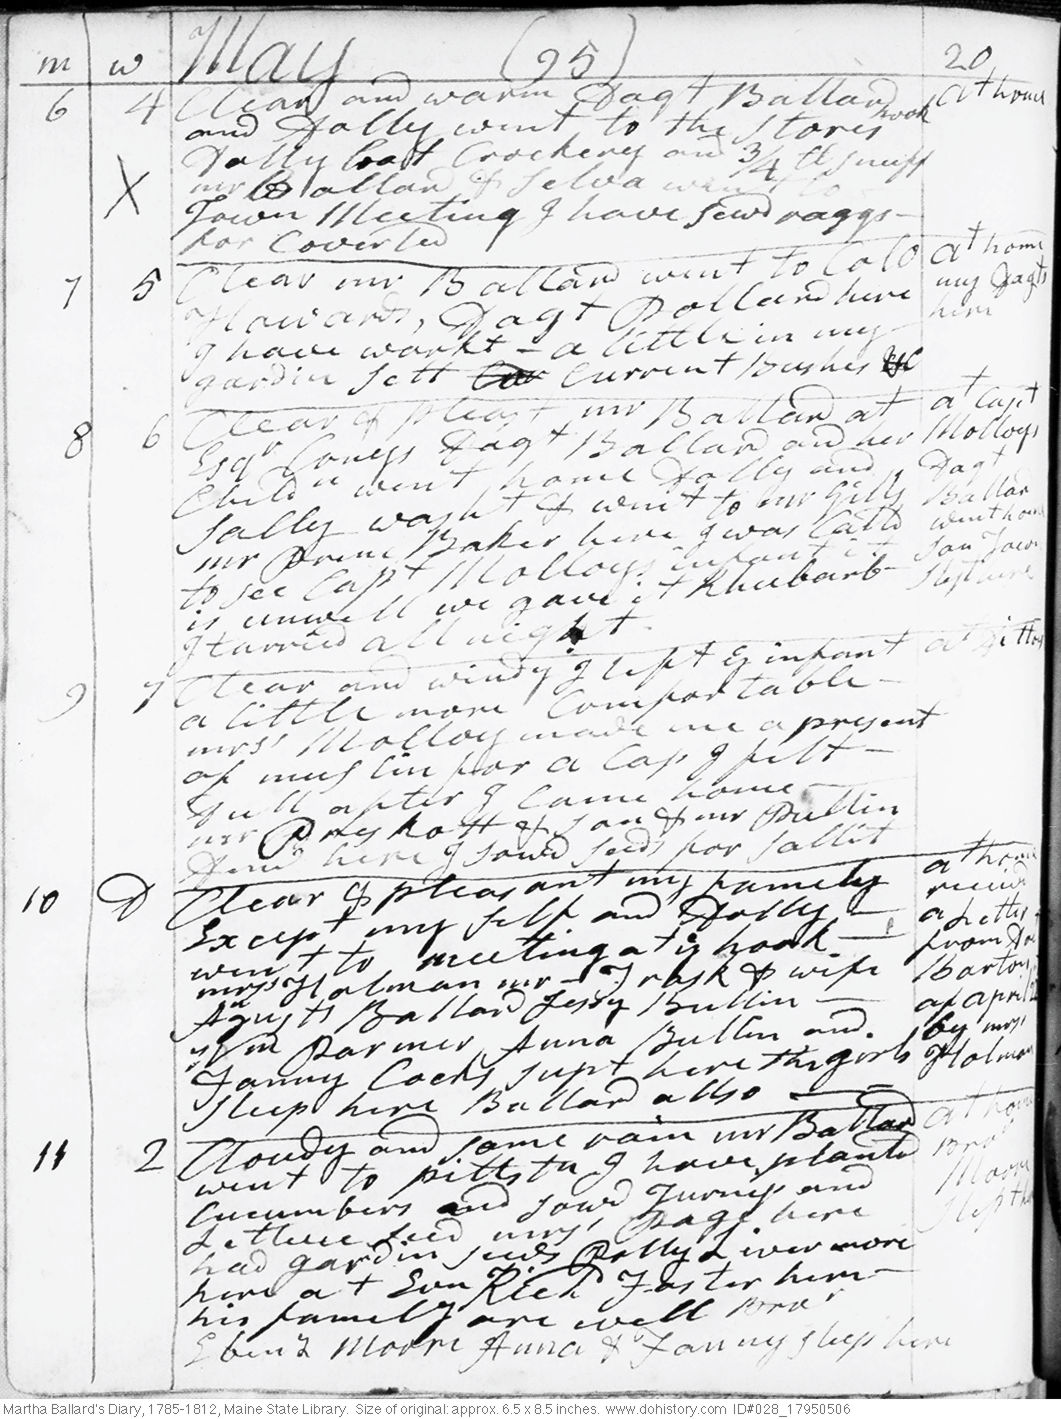 m w May (95) 20
6 4 Clear and warm Dagt Ballard at home
and Dolly went to the stores hook
Dolly bot Crockery and 3/4 lb snuff
mr Ballard & Selva went to
Town Meeting I have sewd raggs
for Coverled
7 5 Clear mr Ballard went to Colo at home
Howards, Dagt Pollard here my Dagts
I have workt a little in my here
gardin sett Current Bushes &C
8 6 Clear & pleast mr Ballard at at Capt
Esqr Coneys Dagt Ballard and her Molloys
Child n went home Dolly and Dagt
Sally washt & went to mr Gills Ballard
mr Prime Baker here I was Calld went home
to see Capt Molloys infant it Son Town
is unwell we gave it Rhubarb slept here
I tarried all night
9 7 Clear and windy I left ye infant at Ditto
a little more Comfortable
mrs Molloy made me a present
of muslin for a Cap I felt
Dull after I Came home
mr Preskott & son & mr Pullin
Dind here I sowd seeds for sallit
10 D Clear & pleasant my family at home
Except my self and Dolly recievd
went to meeting at ye hook a Letter
mrs Holman mr Trask & wife from Dor
Ballard Jessy Bullin Barton
Wm Parmer Anna Bullin and of april
Fanny Cocks supt here the girls by mrs
sleep here Ballard allso Holman
11 2 Cloudy and some rain mr Ballard at home
went to pittstn I have planted Bror
Cucumbers and sowd Turnips and Moore
Lettuce seed mrs Page here slept here
had gardin seeds Polly Livermore
here at Evn Rich Foster here
his family are well Bror
Ebenz Moore Anna & Fanny sleep here
Martha Ballard's Diary, 1785-1812, Maine State Library. Size of original: approx. 6.5 x 8.5 inches. www.dohistory.com ID#028_17950506